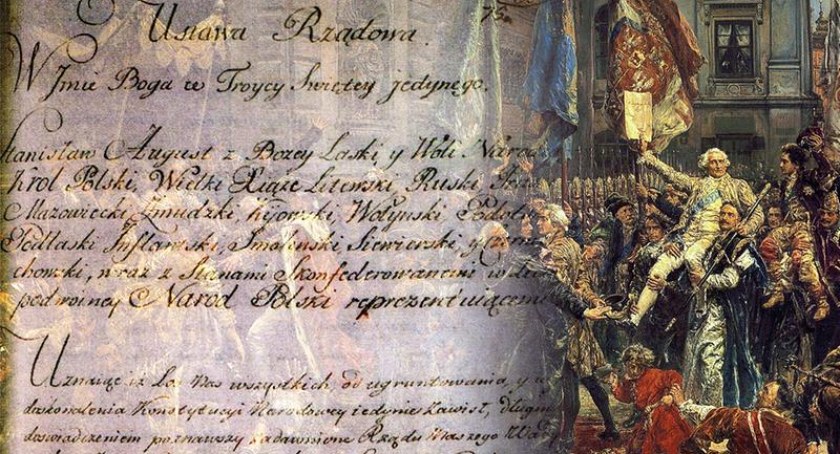 75.
Ustawa Rządowa.
W Jmie Boga w Troycy Swiętey jedynego.
Stanisław August z Bozey Łaski y Woli Narod
Krol Polski, Wielki Xiąże Litewski, Ruski, Prus
Mazowiecki, Zmudzki, Kijowski, Wołynski, Podols
Podlaski, Inflantski, Smolenski, Siewierski, y Czerni
chowski, wraz z Stanami Skonfederowanemi w licz
podwoiney Narod Polski reprezentuiącemi
Uznaiąc iż Los Nas wszystkich, od ugruntowania, y w
doskonalenia Konstytucyi Narodowey iedynie zawisł, długim
doświadczeniem poznawszy zadawnione Rządu Naszego Wady